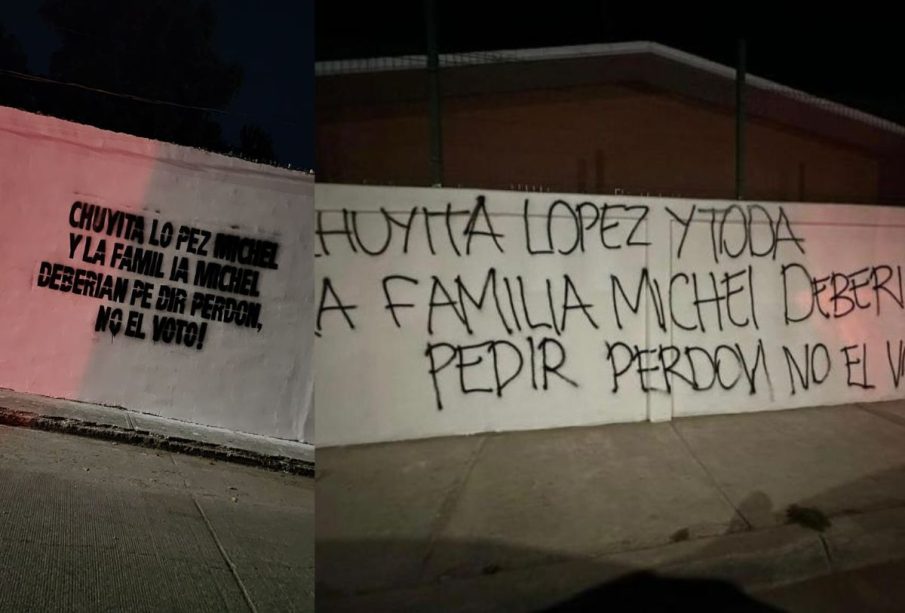 CHUYITA LO PEZ MICHEL
Y LA FAMIL IA MICHEL
DEBERIAN PE DIR PERDON,
NO EL VOTO!
HUYITA LOPEZ Y TODA
A FAMILIA MICHEL DEBERI
PEDIR PERDON NO EL V